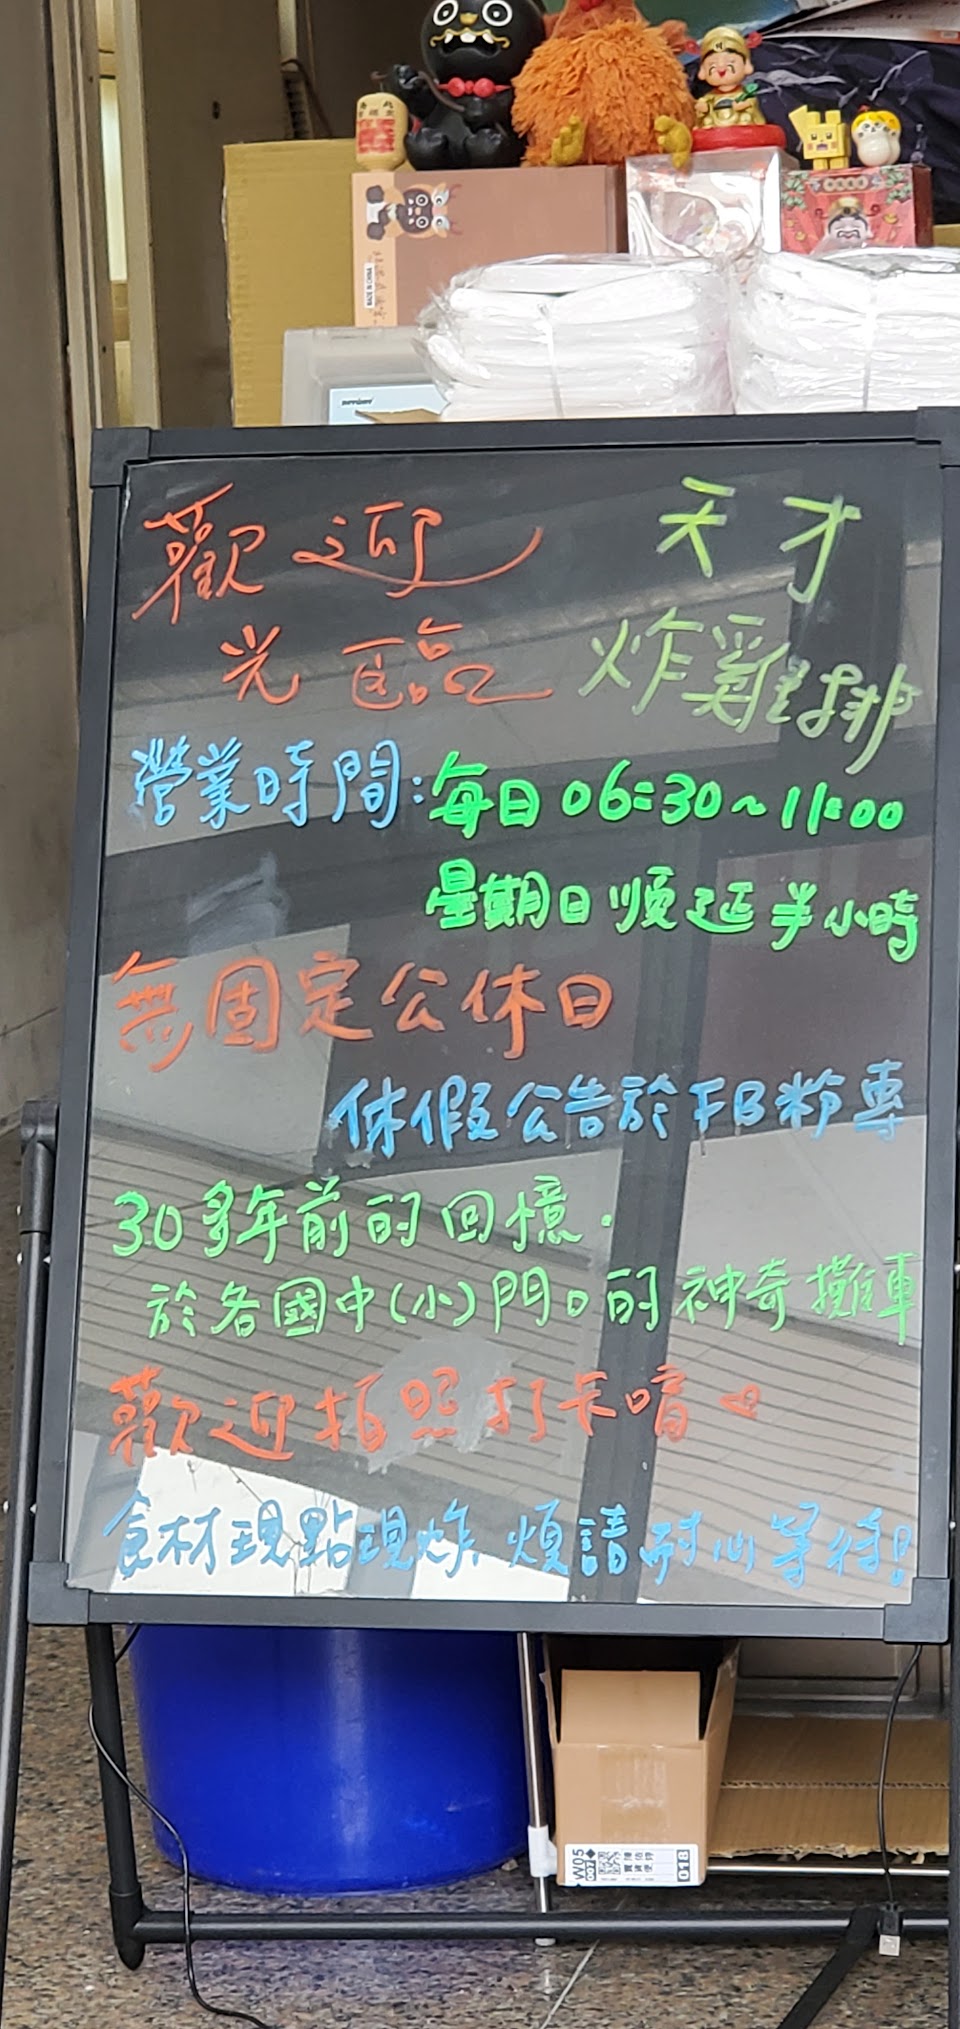 MADE IN CHINA
歡迎
光臨
天才
炸雞排
營業時間:每日06:30~11:00
星期日順延半小時
無固定公休日
休假公告於FB粉專
30多年前的回憶.
於各國中(小)門口的神奇攤車
歡迎拍照打卡唷
食材現點現炸,煩請耐心等待!
W05
007
018